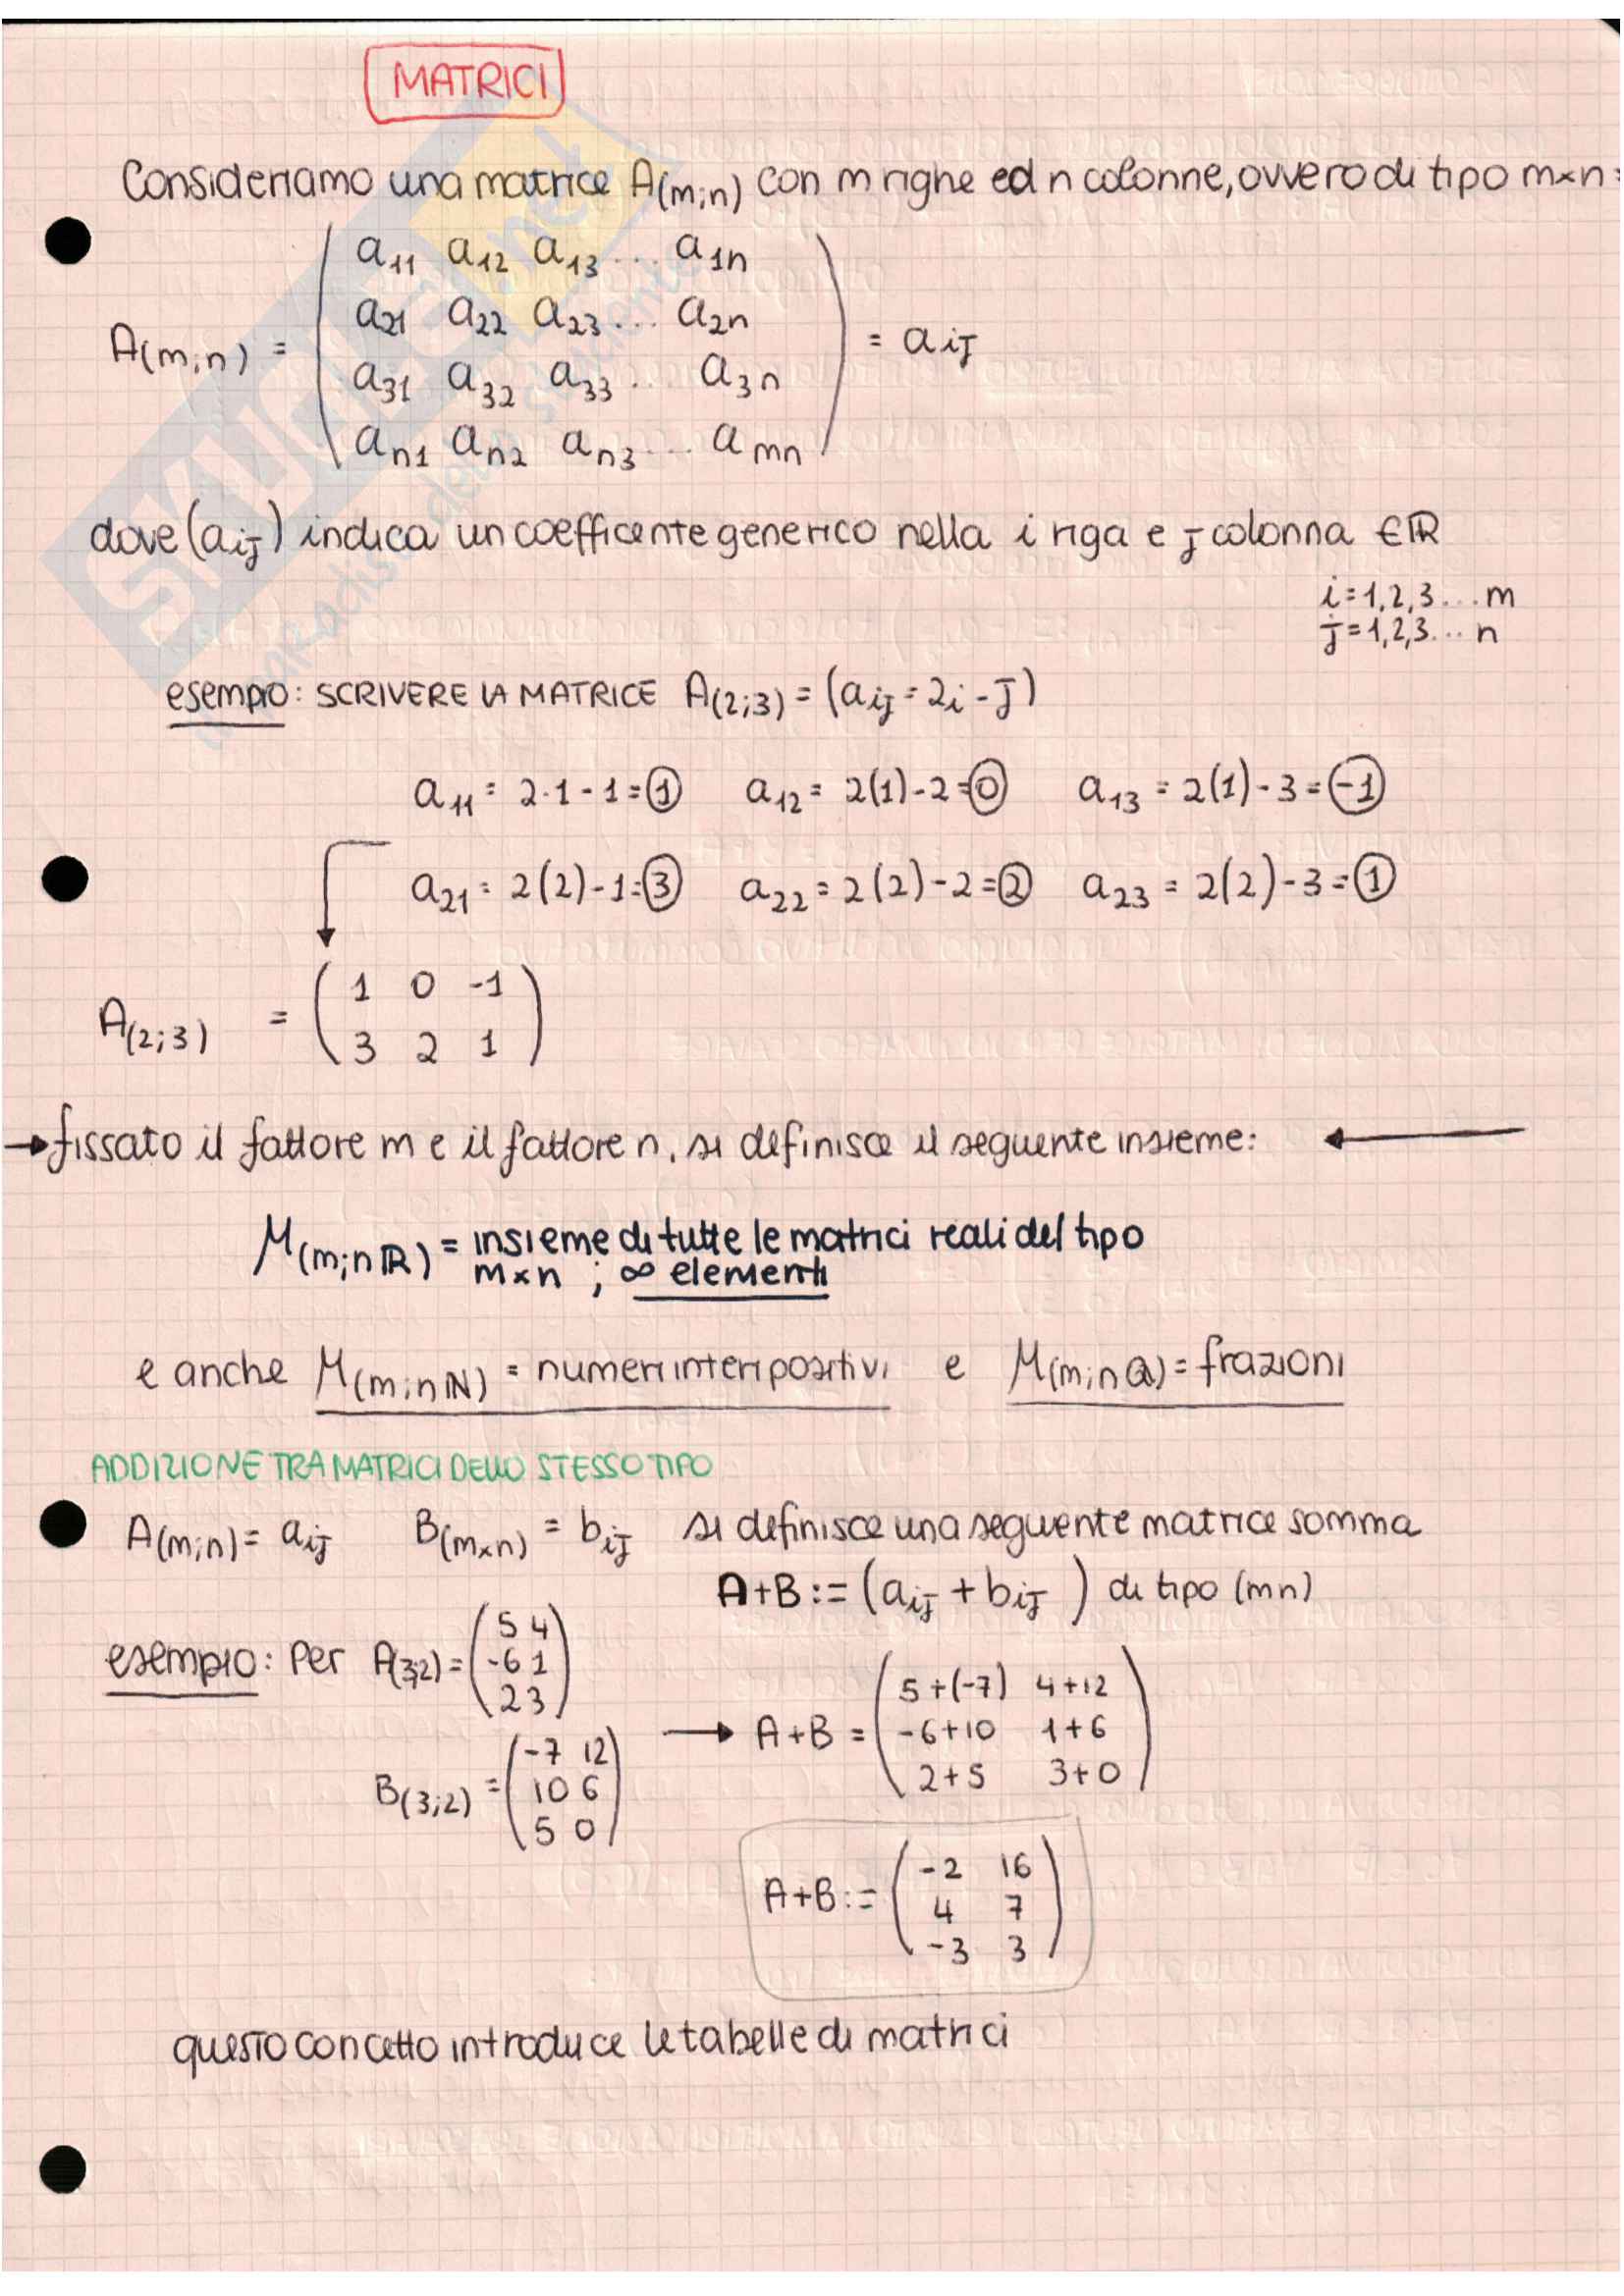 MATRICI
Consideriamo una matrice A(m;n) con m righe ed n colonne, ovvero di tipo m×n:
a11 a12 a13 ... a1n
a21 a22 a23 ... a2n
A(m;n) = = aij
a31 a32 a33 ... a3n
an1 an2 an3 ... amn
dove (aij) indica un coefficente generico nella i riga e j colonna ∈ℝ
i=1,2,3...m
j=1,2,3...n
esempio: SCRIVERE LA MATRICE A(2;3) = (aij = 2i - j)
a11 = 2·1 - 1 = 1 a12 = 2(1) - 2 = 0 a13 = 2(1) - 3 = -1
a21 = 2(2) - 1 = 3 a22 = 2(2) - 2 = 2 a23 = 2(2) - 3 = 1
1 0 -1
A(2;3) =
3 2 1
→ fissato il fattore m e il fattore n, si definisce il seguente insieme: ←
M(m;nℝ) = insieme di tutte le matrici reali del tipo
m×n ; ∞ elementi
e anche M(m;nℕ) = numeri interi positivi e M(m;nℚ) = frazioni
ADDIZIONE TRA MATRICI DELLO STESSO TIPO
A(m;n) = aij B(m×n) = bij si definisce una seguente matrice somma
A+B := (aij + bij) di tipo (mn)
5 4
esempio: Per A(3;2) = -6 1
2 3
5+(-7) 4+12
→ A+B = -6+10 1+6
2+5 3+0
-7 12
B(3;2) = 10 6
5 0
-2 16
A+B := 4 7
-3 3
questo concetto introduce le tabelle di matrici